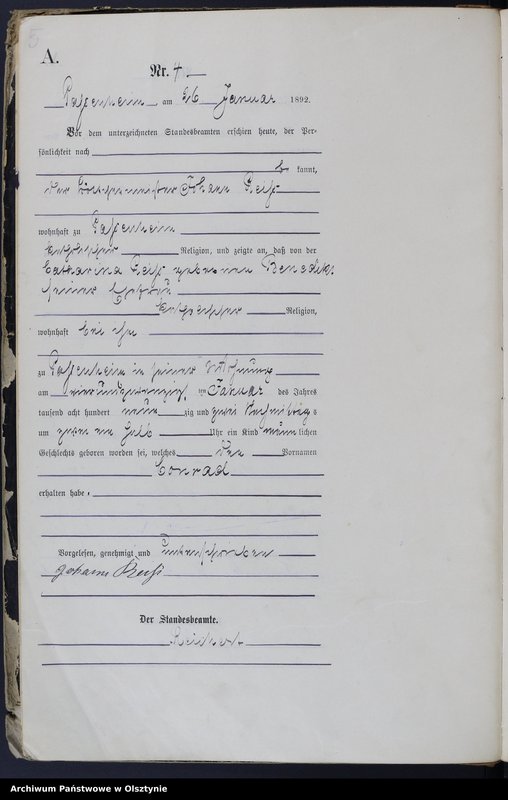 5
A.
Nr. 4.
Passenheim am 26 Januar 1892.
Vor dem unterzeichneten Standesbeamten erschien heute, der Per-
sönlichkeit nach
be kannt,
der Johann
wohnhaft zu Passenheim
katholischer Religion, und zeigte an, daß von der
Catharina geborenen Benedikt
seiner Ehefrau
katholischer Religion,
wohnhaft bei ihm
zu Passenheim in seiner Wohnung
am vierundzwanzigsten Januar des Jahres
tausend acht hundert neun zig und zwei Nachmittags
um zwei ein halb Uhr ein Kind männlichen
Geschlechts geboren worden sei, welches den Vornamen
Conrad
erhalten habe.
Vorgelesen, genehmigt und unterschrieben
Johann
Der Standesbeamte.
Archiwum Państwowe w Olsztynie